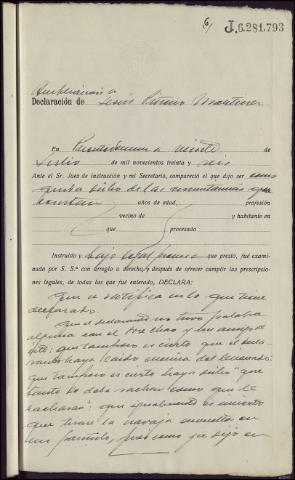 6/ J.6.281.793
Declaración de Jesús Moreno Martinez
En a veinte
Julio de mil novecientos treinta y seis
Ante el Sr. Juez de instrucción y mi Secretario, compareció el que dijo ser como
queda dicho de las circunstancias que
constan años de edad, profesión
vecino de y habitante en
que procesado
Instruido y bajo que prestó, fué examinado
por S. S.ª con arreglo a derecho, y después de ofrecer cumplir las prescripciones
legales, de todas las que fué enterado, DECLARA:
Que se ratifica en lo que tiene
declarado.
Que el declarante no tuvo palabra
alguna con el y su amigo
que tampoco es cierto que el decla-
rante haya caido encima del lesionado:
que tampoco es cierto haya dicho "que
tanto le daba
que igualmente es incierto
que tirase la navaja envuelta en
un pañuelo, pues como ya dijo en